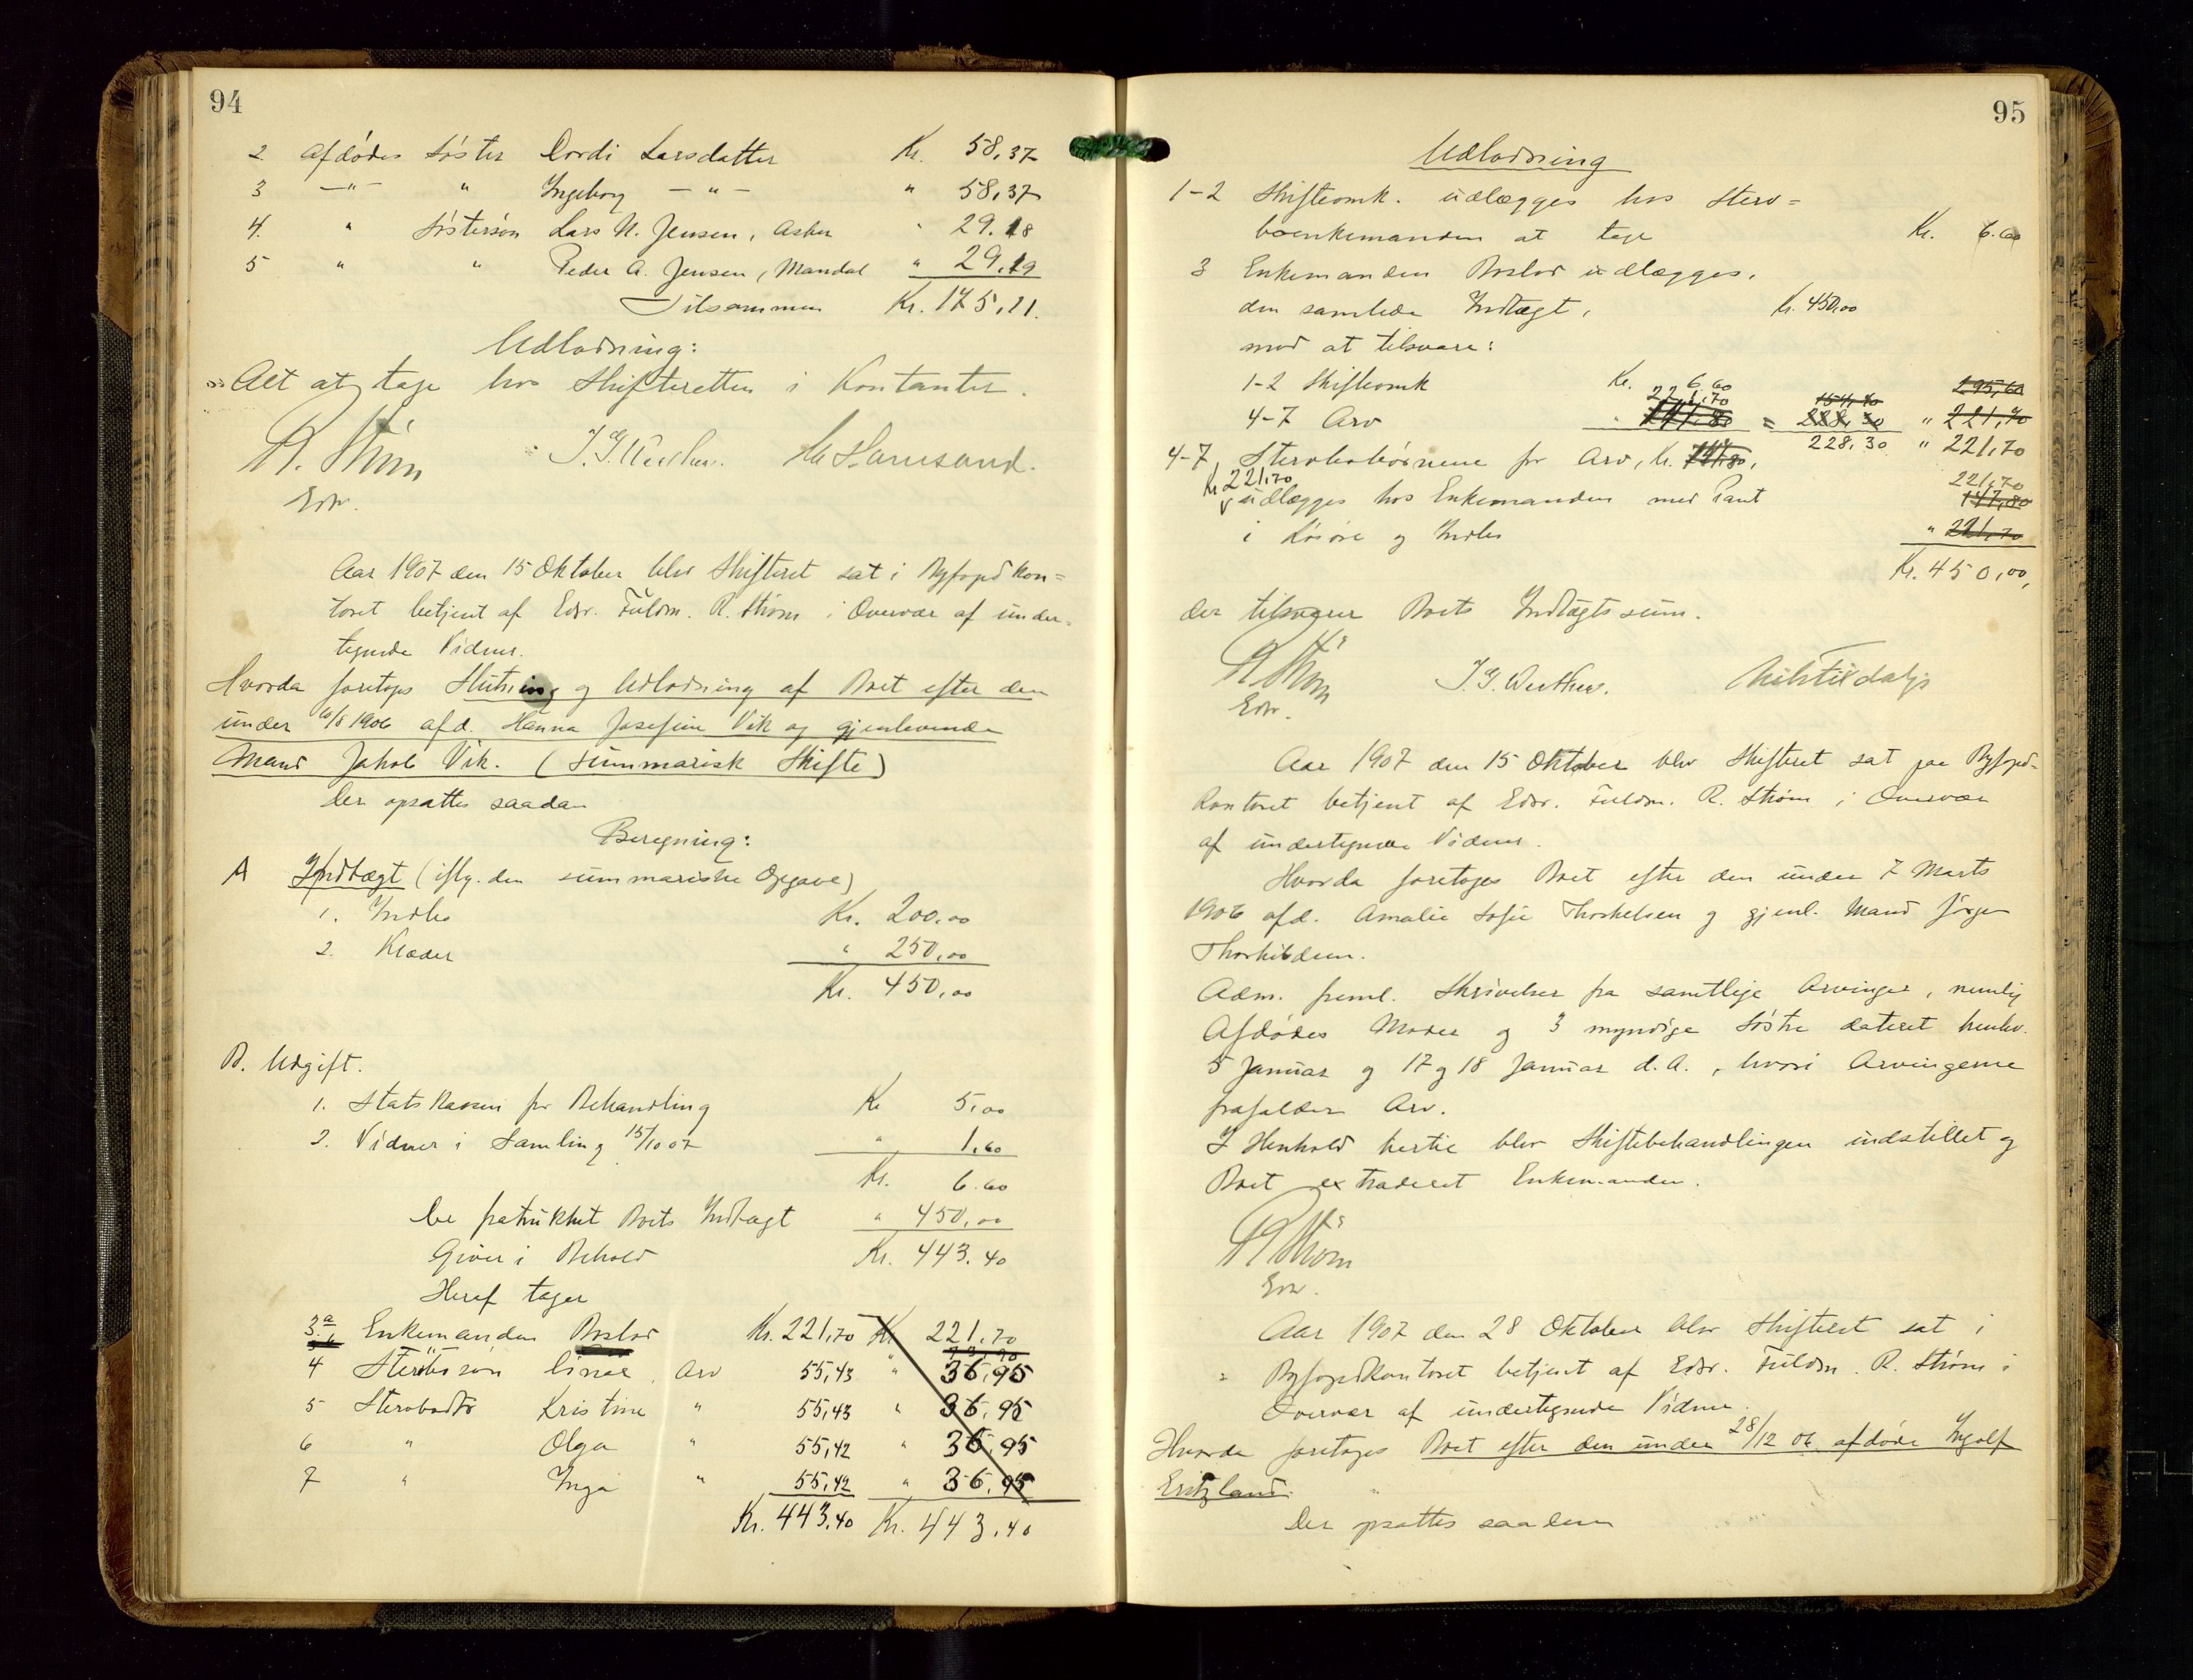 94
2. Afdødes Søster Dordi Larsdatter Kr. 58,37
3 —"— " Ingeborg —"— " 58,37
4. " Søstersøn Lars N. Jensen, Asker " 29.18
5 " " Peder A. Jensen, Mandal " 29.19
Tilsammen Kr. 175,11.
Udlodning:
Alt at tage hos Skifteretten i Kontanter.
R. Strøm J. G. Werthew.
Edsv.
Aar 1907 den 15 Oktober blev Skifteret sat i Byfogdkon=
toret betjent af Edsv. Fuldm. R. Strøm i Overvær af under-
tegnede Vidner.
Hvorda foretoges Slutning og Udlodning af Boet efter den
under 10/8 1906 afd. Hanna Josefine Vik og gjenlevende
Mand Jakob Vik. (summarisk Skifte)
Der opsattes saadan
Beregning:
A Indtægt (iflg. den summariske Opgave)
1. Indbo Kr. 200,00
2. Klæder " 250,00
Kr. 450,00
B. Udgift.
1. Statskassen for Behandling Kr 5,00
2. Vidner i Samling 15/10 07 " 1,60
Kr. 6.60
De fratrukket Boets Indtægt " 450,00
Giver i Behold Kr. 443.40
Heraf tager
3. Enkemanden Boslod Kr. 221,70 Kr 221,70
4 Sterbosøn Arv 55,43 " 36,95
5 Sterbodtr Kristine " 55,43 " 36,95
6 " Olga " 55,42 " 36,95
7 " Inga " 55,42 " 36,95
Kr. 443,40 Kr. 443,40
95
Udlodning
1-2 Skifteomk. udlægges hos Sterv=
boenkemanden at tage Kr. 6.60
3 Enkemanden Boslod udlægges,
den samlede Indtægt, Kr. 450,00
mod at tilsvare:
1-2 Skifteomk Kr. 6,60 295,60
221,70 151,40
4-7 Arv " 147,80 = 228,30 " 221,70
228,30 " 221,70
4-7 Stervbobørnene for Arv, Kr. 147,80,
Kr 221,70 221,70
udlægges hos Enkemanden med Pant 147,80
i Løsøre og Indbo " 221,70
Kr. 450,00,
der tilsvarer Boets Indtægtssum.
R Strøm J. G. Werthew.
Edsv.
Aar 1907 den 15 Oktober blev Skifteret sat paa Byfogd-
kontoret betjent af Edsv. Fuldm. R. Strøm i Overvær
af undertegnede Vidner.
Hvorda foretoges Boet efter den under 7 Marts
1906 afd. Amalie Sofie Thorkelsen og gjenl. Mand Jørgen
Adm. freml. Skrivelser fra samtlige Arvinger, nemlig
Afdødes Moder og 3 myndige Søstre dateret henhv.
5 Januar og 17 og 18 Januar d. A., hvori Arvingerne
frafalder Arv.
I Henhold hertil blev Skiftebehandlingen indstillet og
Boet extraderet Enkemanden.
R Strøm
Edsv.
Aar 1907 den 28 Oktober blev Skifteret sat i
Byfogdkontoret betjent af Edsv. Fuldm. R. Strøm i
Overvær af undertegnede Vidner.
Hvorda foretoges Boet efter den under 28/12 06 afdøde Ingolf
Eritzland.
Der opsattes saadan